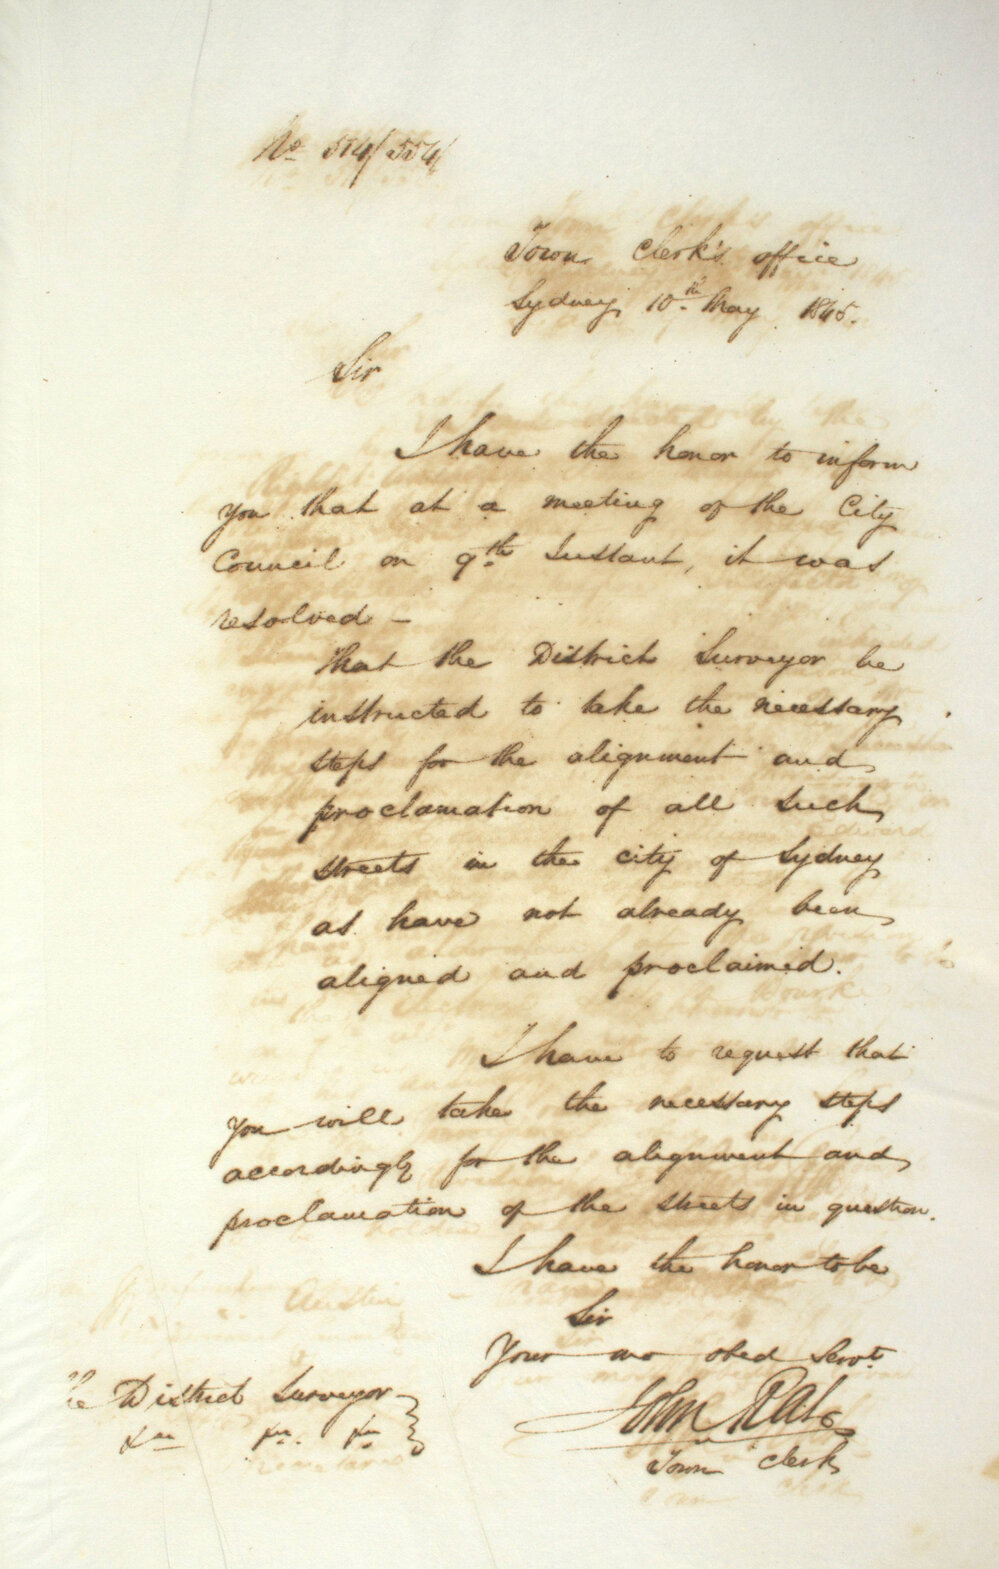 No 514/554/
Town Clerk's office
Sydney 10th May 1845.
Sir
I have the honor to inform
you that at a meeting of the City
Council on 9th Instant, it was
resolved –
that the District Surveyor be
instructed to take the necessary
steps for the alignment and
proclamation of all such
streets in the city of Sydney
as have not already been
aligned and proclaimed.
I have to request that
you will take the necessary steps
accordingly for the alignment and
proclamation of the streets in question.
I have the honor to be
Sir
Your mo obed Servt
he District Surveyor
John Rae
Town Clerk